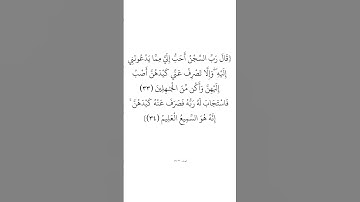 ﴿قَالَ رَبِّ السِّجْنُ أَحَبُّ إِلَيَّ مِمَّا يَدْعُونَنِي
إِلَيْهِ ۖ وَإِلَّا تَصْرِفْ عَنِّي كَيْدَهُنَّ أَصْبُ
إِلَيْهِنَّ وَأَكُن مِّنَ الْجَاهِلِينَ (٣٣)
فَاسْتَجَابَ لَهُ رَبُّهُ فَصَرَفَ عَنْهُ كَيْدَهُنَّ ۚ
إِنَّهُ هُوَ السَّمِيعُ الْعَلِيمُ (٣٤)﴾